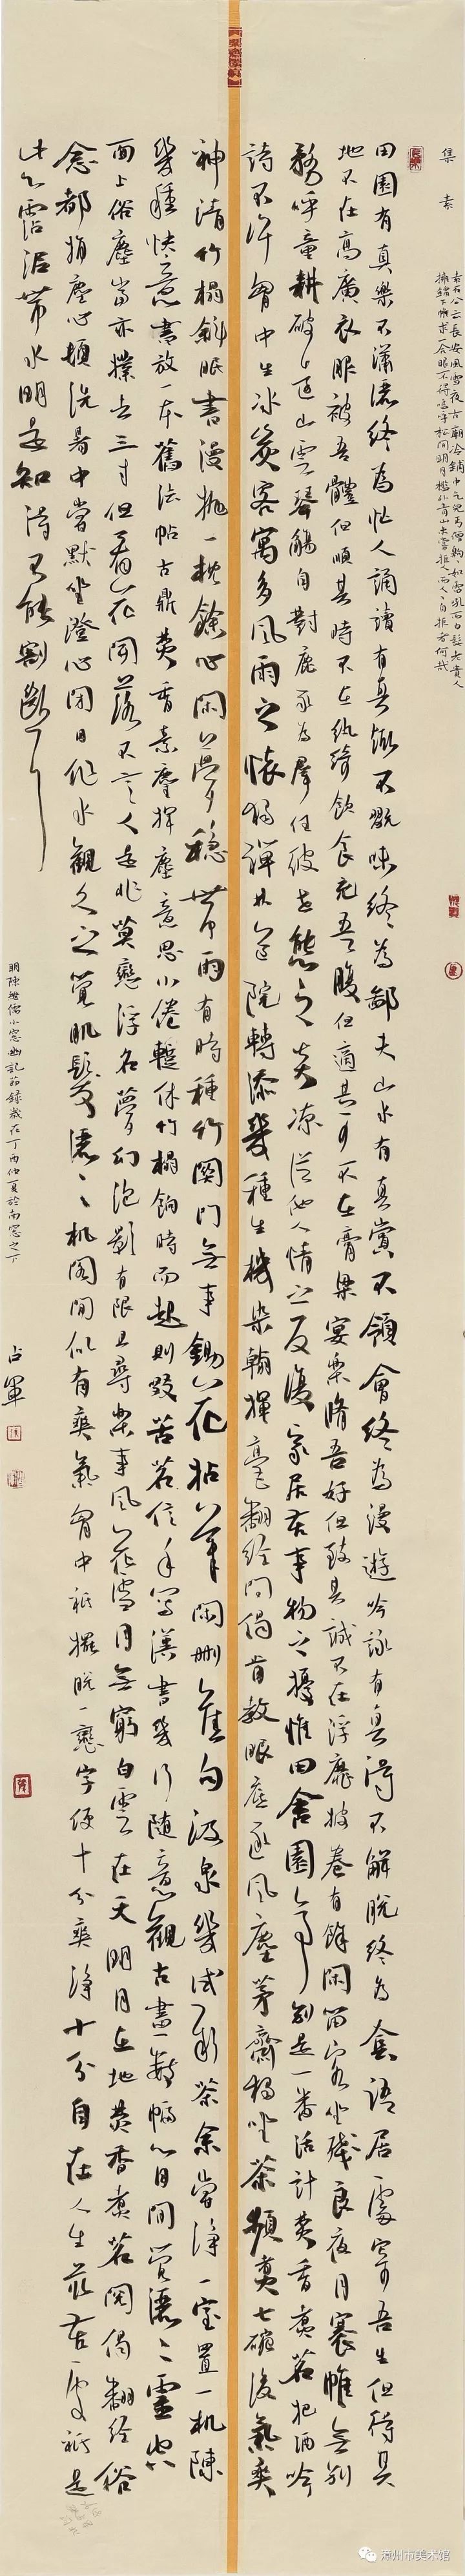 集素
袁石公云長安風雪夜古廟冷鋪中乞兒丐僧齁齁如雷吼而白髭老貴人
擁錦下帷求一合眼不得嗚呼松間明月檻外青山未嘗拒人而人人自拒者何哉
田園有真樂不瀟灑終為忙人誦讀有真趣不翫味終為鄙夫山水有真賞不領會終為漫遊吟詠有真得不解脫終為套語居處寄吾生但得其
地不在高廣衣服被吾體但順其時不在紈綺飲食充吾腹但適其可不在膏粱宴樂脩吾好但致其誠不在浮靡披卷有餘閑留客坐殘良夜月褰帷無別
務呼童耕破遠山雲琴觴自對鹿豕為群任彼世態之炎涼從他人情之反復家居苦事物之擾惟田舍園亭別是一番活計焚香煮茗把酒吟
詩不許胷中生冰炭客寓多風雨之懷獨禪林道院轉添幾種生機染翰揮毫翻經問偈肯教眼底逐風塵茅齋獨坐茶頻煮七碗後氣爽
神清竹榻斜眠書漫拋一枕餘心閑夢穩帶雨有時種竹關門無事鋤花拈筆閑刪舊句汲泉幾試新茶余嘗淨一室置一机陳
幾種快意書放一本舊法帖古鼎焚香素麈揮塵意思小倦暫休竹榻餉時而起則啜苦茗信手寫漢書幾行隨意觀古畫數幅心目間覺灑灑靈空
面上俗塵當亦撲去三寸但看花開落不言人是非莫戀浮名夢幻泡影有限且尋樂事風花雪月無窮白雲在天明月在地焚香煮茗閱偈翻經俗
念都捐塵心頓洗暑中嘗默坐澄心閉目作水觀久之覺肌髮灑灑机閣間似有爽氣胷中衹擺脫一戀字便十分爽淨十分自在人生最苦處衹是
此心霑泥帶水明是知得不能割斷耳
明陳繼儒小窗幽記節錄歲在丁酉仲夏於南窗之下
占軍
漳州市美术馆